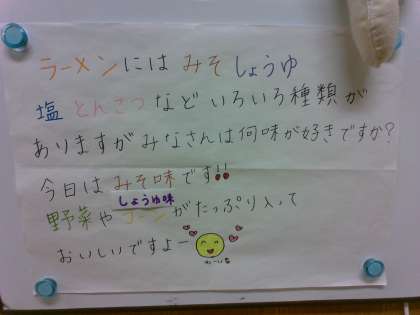 ラーメンには みそ しょうゆ
塩 とんこつ など いろいろ種類が
ありますが みなさんは何味が好きですか?
今日は みそ味です!!
しょうゆ味
野菜や コーン がたっぷり入って
おいしいですよー